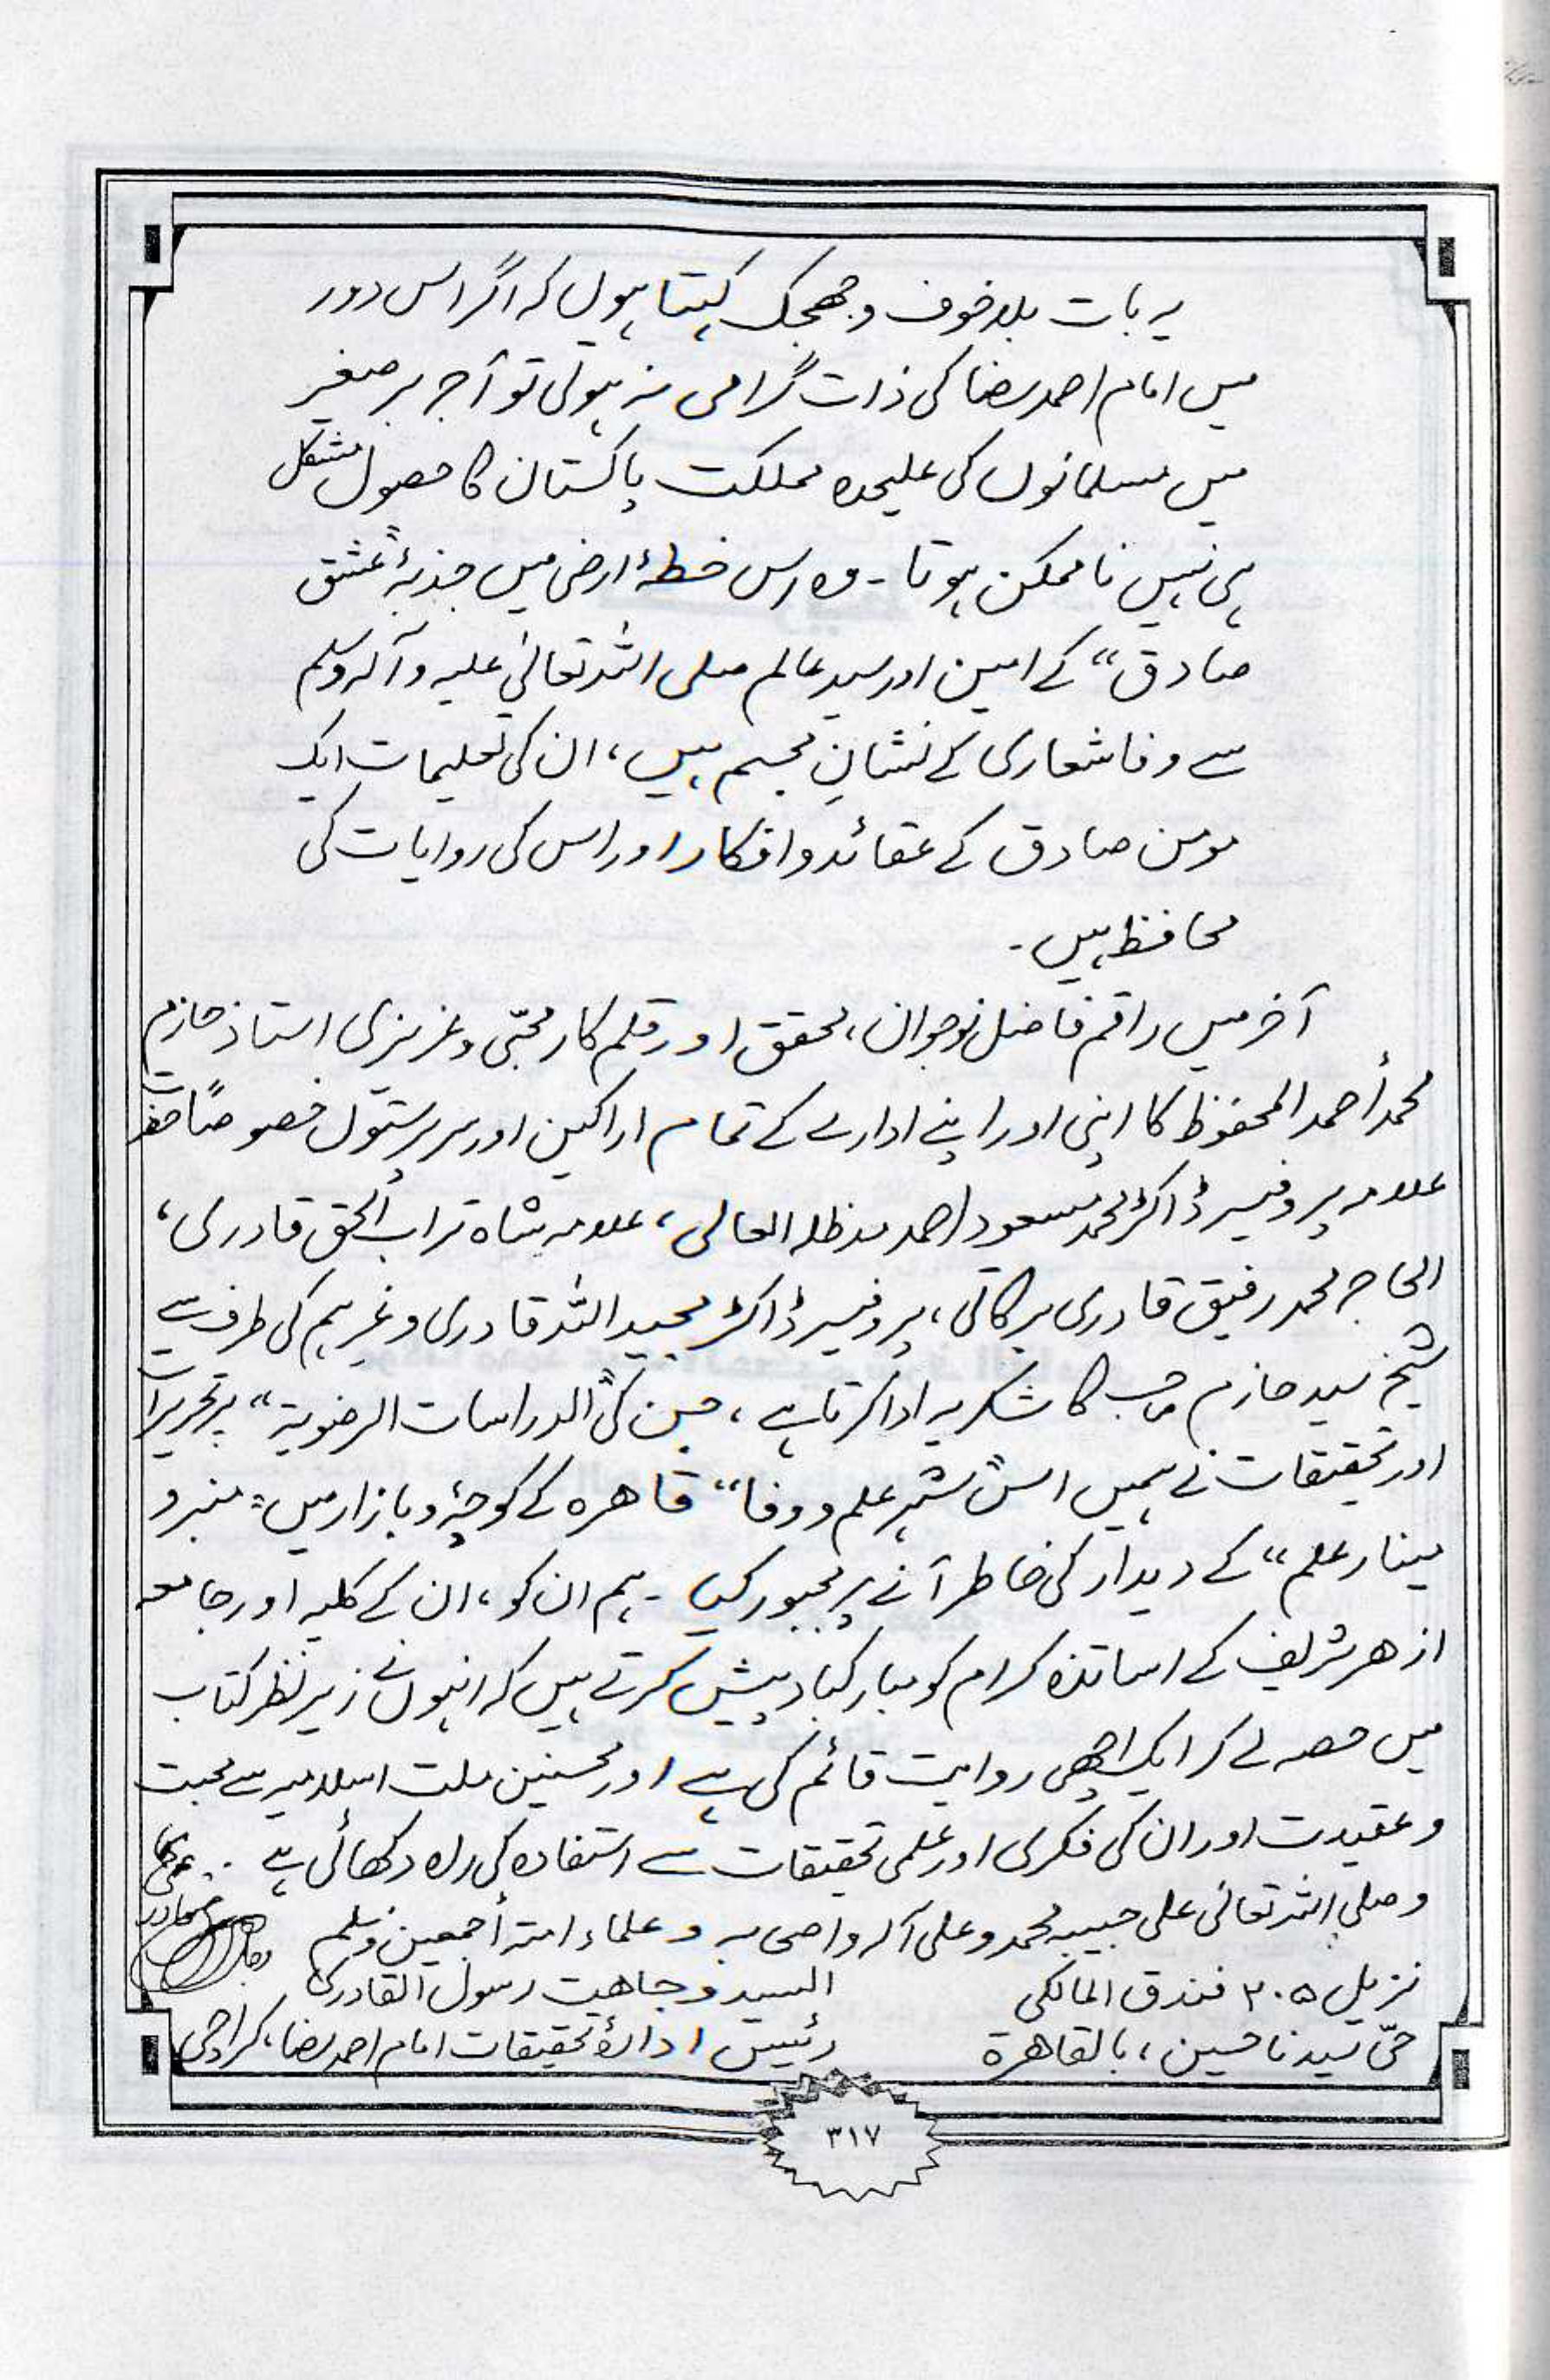 یہ بات بلاخوف و جھجک کہتا ہوں کہ اگر اس دور
میں امام احمد رضا کی ذات گرامی نہ ہوتی تو آج برصغیر
میں مسلمانوں کی علیحدہ مملکت پاکستان کا حصول مشکل
ہی نہیں ناممکن ہوتا - وہ اس خطۂ ارضی میں جذبۂ "عشق
صادق" کے امین اور سید عالم صلی اللہ تعالیٰ علیہ وآلہ وسلم
سے وفا شعاری کے نشانِ مجسم ہیں، ان کی تعلیمات ایک
مومن صادق کے عقائد و افکار اور اس کی روایات کی
محافظ ہیں -
آخر میں راقم فاضل نوجوان، محقق اور قلم کار محبّی و عزیزی استاذ حازم
محمد أحمد المحفوظ کا اپنی اور اپنے ادارے کے تمام اراکین اور سرپرستوں خصوصاً حضرت
علامہ پروفیسر ڈاکٹر محمد مسعود احمد مدظلہ العالی، علامہ شاہ تراب الحق قادری،
الحاج محمد رفیق قادری برکاتی، پروفیسر ڈاکٹر مجید اللہ قادری وغیرہم کی طرف سے
شیخ سید حازم صاحب کا شکریہ ادا کرتا ہے، جن کی "الدراسات الرضویة" پر تحریرات
اور تحقیقات نے ہمیں اس "شہر علم و وفا" قاھرہ کے کوچۂ و بازار میں "منبر و
مینار علم" کے دیدار کی خاطر آنے پر مجبور کیا - ہم ان کو، ان کے کلیہ اور جامعہ
ازھر شریف کے اساتذہ کرام کو مبارکباد پیش کرتے ہیں کہ انہوں نے زیر نظر کتاب
میں حصہ لے کر ایک اچھی روایت قائم کی ہے اور محسنین ملت اسلامیہ سے محبت
و عقیدت اور ان کی فکری اور علمی تحقیقات سے استفادہ کی راہ دکھائی ہے
وصلی اللہ تعالیٰ علی حبیبہ محمد و علی آلہ واصحابہ و علماء امتہ أجمعین وسلم
نزیل ۲۰۵ فندق المالکی
السید وجاھت رسول القادری
حیّ سیدنا حسین، بالقاھرة
رئیس ادارۂ تحقیقات امام احمد رضا، کراچی
۳۱۷